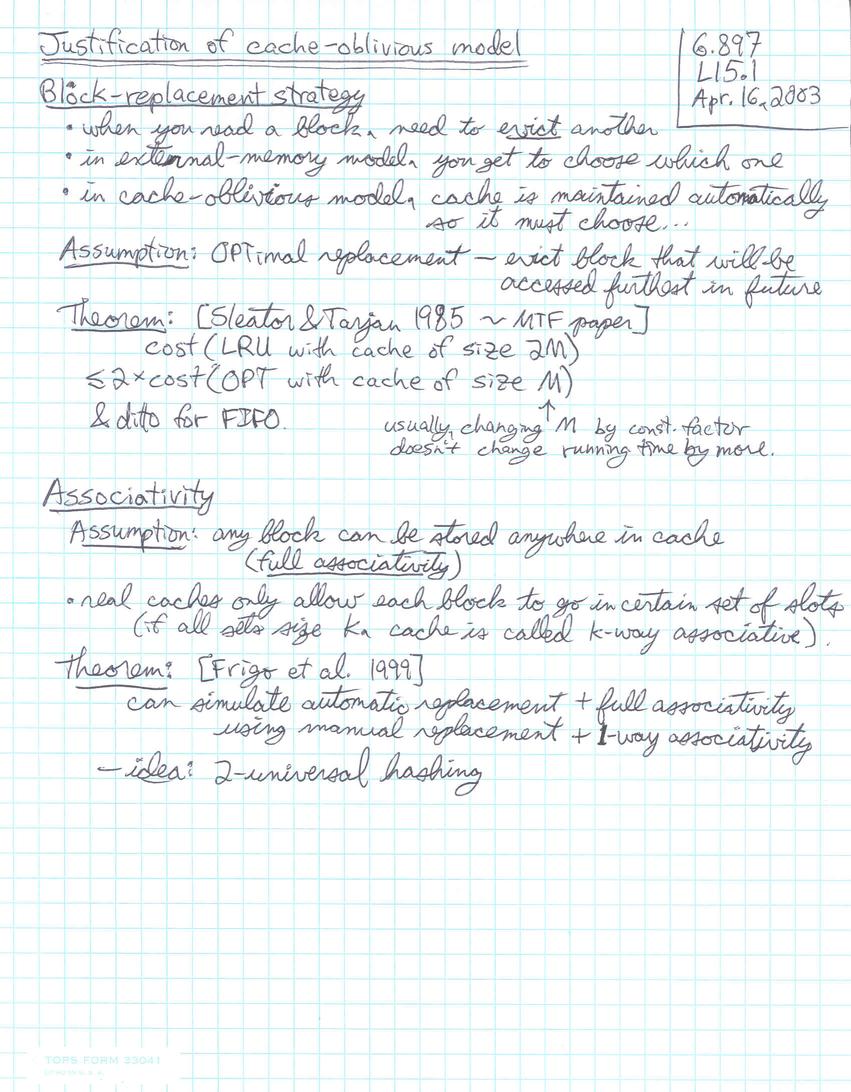 Justification of cache-oblivious model
6.897
L15.1
Apr. 16, 2003
Block-replacement strategy
• when you read a block, need to evict another
• in external-memory model, you get to choose which one
• in cache-oblivious model, cache is maintained automatically
so it must choose...
Assumption: OPTimal replacement — evict block that will be
accessed furthest in future
Theorem: [Sleator & Tarjan 1985 ~ MTF paper]
cost(LRU with cache of size 2M)
≤ 2 × cost(OPT with cache of size M)
& ditto for FIFO.
↑
usually, changing M by const. factor
doesn't change running time by more.
Associativity
Assumption: any block can be stored anywhere in cache
(full associativity)
• real caches only allow each block to go in certain set of slots
(if all sets size k, cache is called k-way associative).
Theorem: [Frigo et al. 1999]
can simulate automatic replacement + full associativity
using manual replacement + 1-way associativity
— idea: 2-universal hashing
TOPS FORM 33041